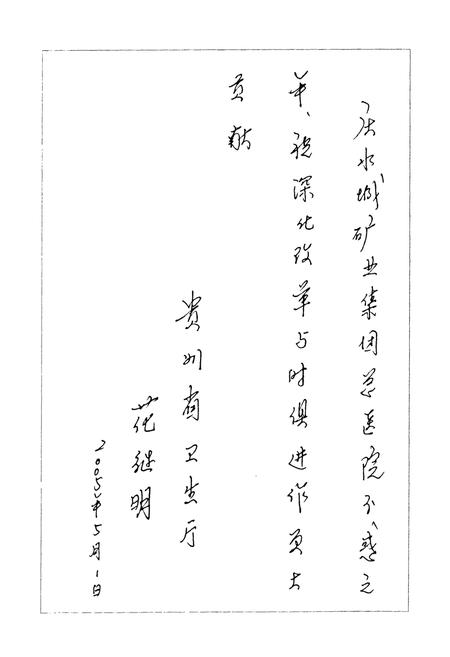 庆水城矿业集团总医院不惑之
年、祝深化改革与时俱进作更大
贡献
贵州省卫生厅
花继明
2005年5月1日